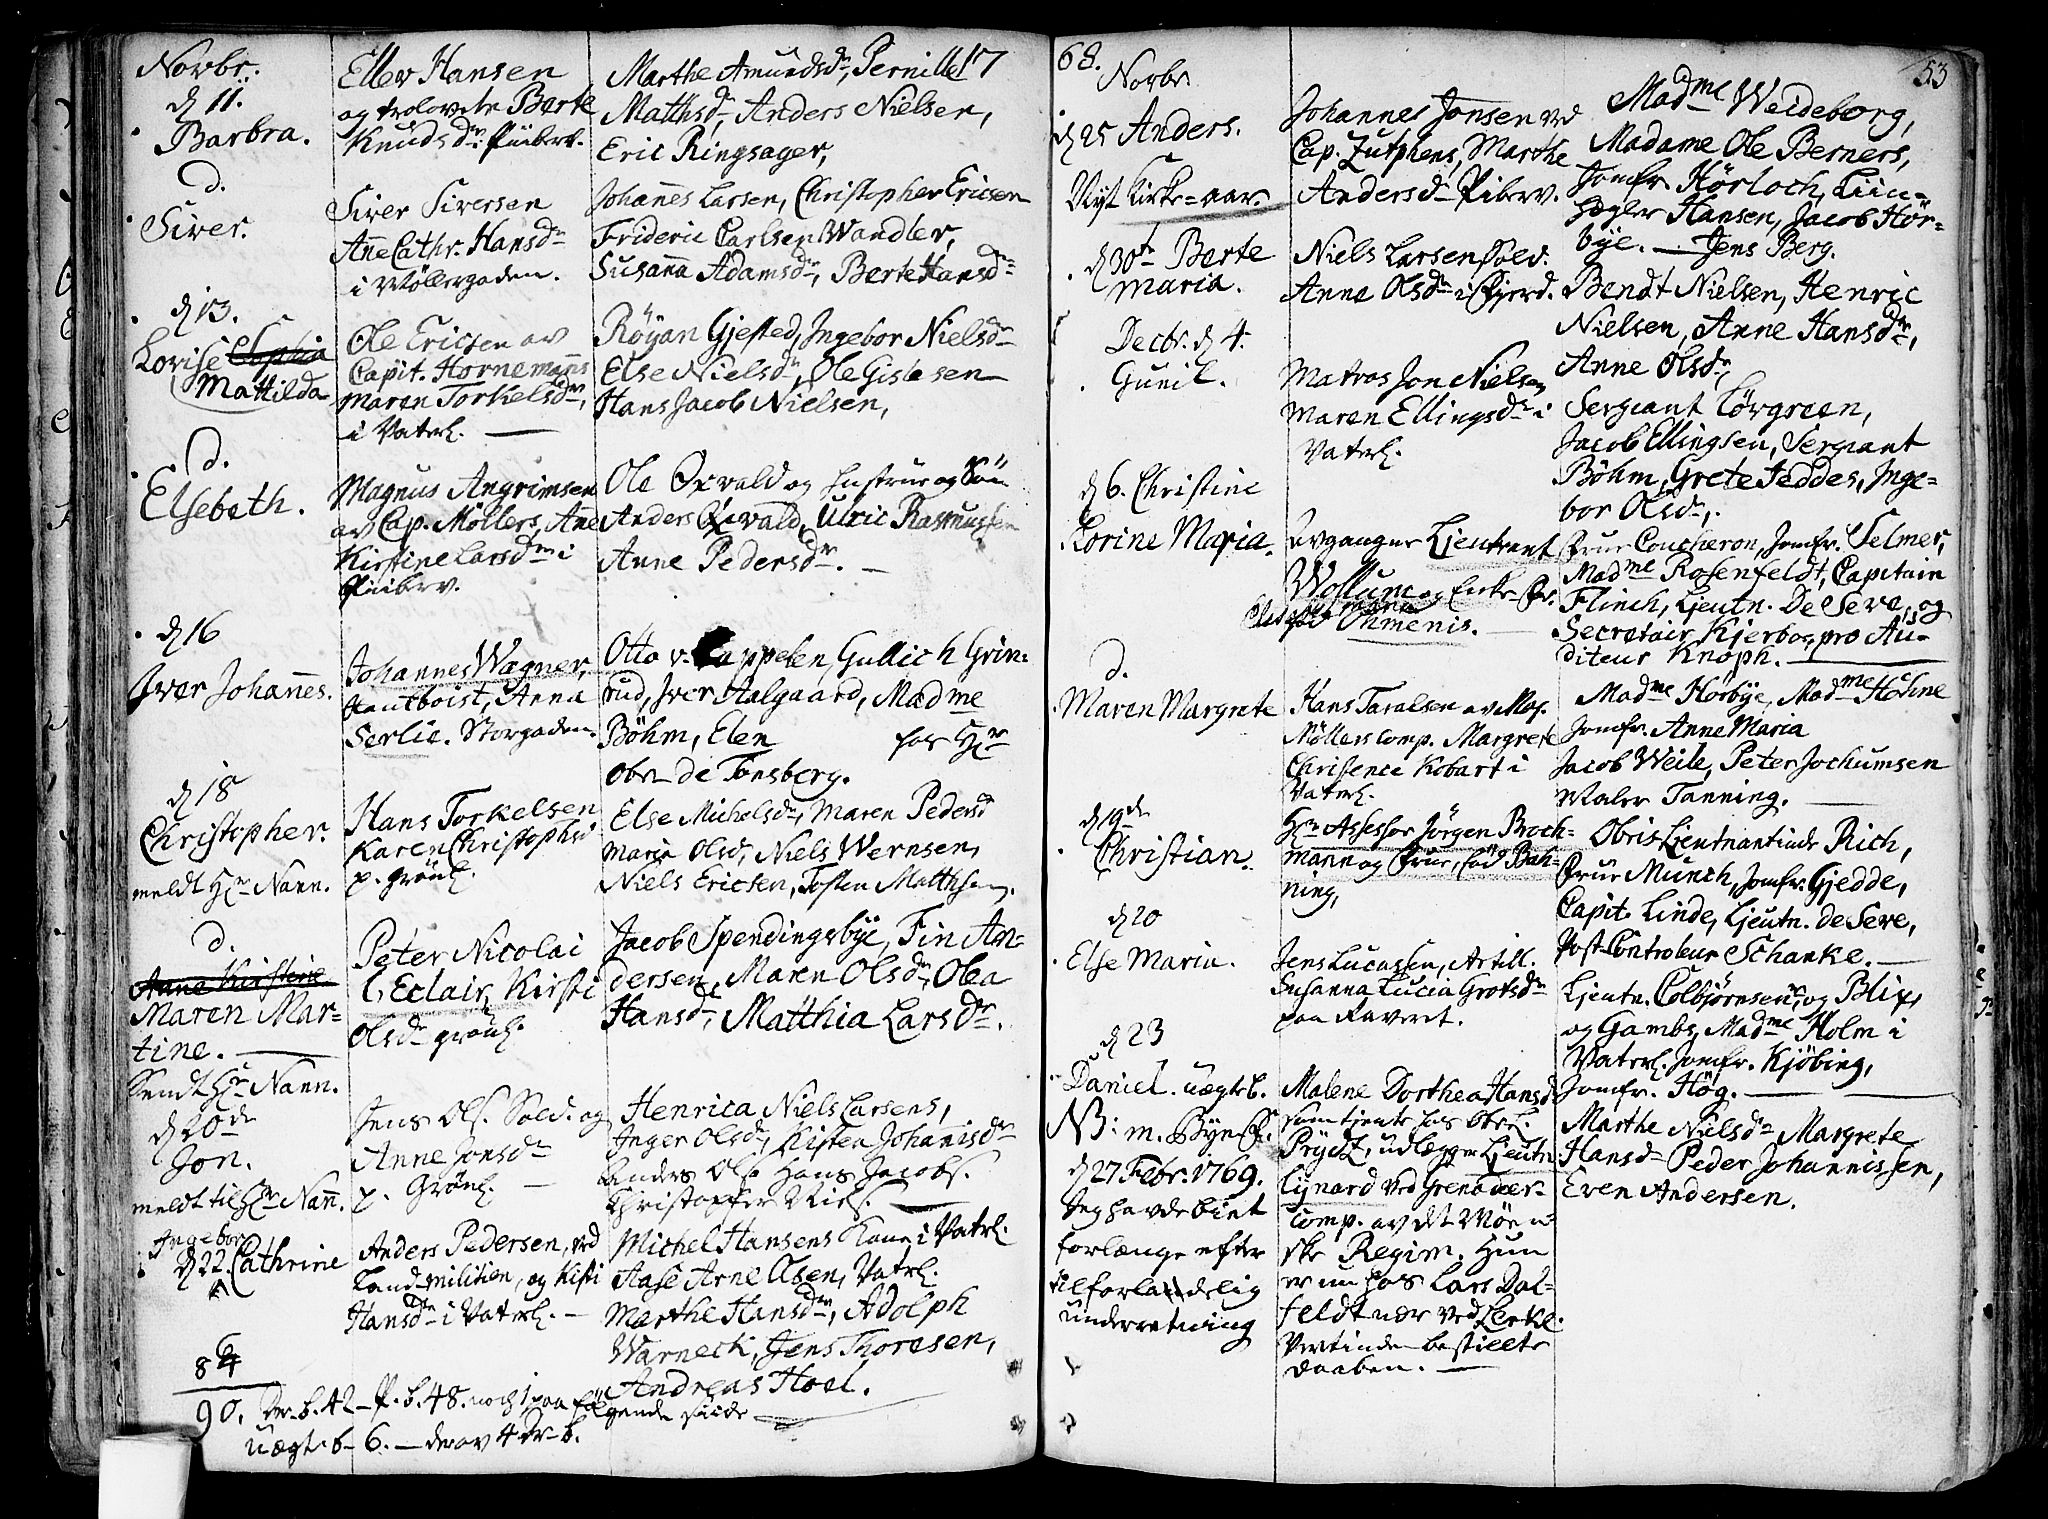 17
Norbr.
d 11.
Barbra.
Ellev Hansen
og trolovete Berte
Knudsdr. Piiberv.
Marthe Amundsdr, Pernille
Mathsdr, Anders Nielsen,
Eric Ringsager,
d.
Siver.
Siver Siversen
Anne Cathr. Hansdr
i Möllergaden.
Johanes Larsen, Christopher Ericsen
Frideric Carlsen Wandler,
Susanna Adamsdr, Berte Hansdr
d 13.
Lovise Sophia
Mattilda
Ole Ericsen av
Capit. Hornemanns
Maren Torkelsdr,
i Vaterl.
Röyan Gjested, Ingebor Nielsdr
Else Nielsdr, Ole Gislesen
Hans Jacob Nielsen,
d.
Elsebeth.
Magnus Angrimsen
av Cap. Möllers, Ane
Kirstine Larsdr i
Piiberv.
Ole Oxvald og hustrue og Sön
Anders Oxvald, Ulric Rasmussen
Anne Pedersdr.
d 16
Iver Johannes.
Johannes Wagner,
Hautboist, Anna
Serlie. Storgaden.
Otto v. Cappelen, Gullich Grin-
rud, Iver Aalgaard, Madme
Böhm, Elen hos Hr
Obr de Tonsberg.
d 18
Christopher.
meldt Hr Nann.
Hans Torkelsen
Karen Christophri
p. grönl.
Else Michelsdr, Maren Pedersd
Marie Olsd, Niels Wernsen,
Niels Ericsen, Tosten Matthsen.
d.
Anne Kirstine
Maren Mar-
tine.
Sendt Hr Nann.
Peter Nicolai
l'Eclair, Kirsti
Olsdr grönl.
Jacob Spendingsbye, Fin An-
dersen, Maren Olsdr, Olea
Hansdr, Matthia Larsdr.
d 20de
Jon.
meldt til Hr Nann.
Jens Ols. Sold. og
Anne Jonsdr
p. Grönl.
Henrica Niels Larsens,
Inger Olsdr, Kisten Johanisdr
Anders Ols Hans Jacobs.
Christopher Niels.
Ingebor
d 22. Cathrine
Anders Pedersen, ved
Landmilitien, og Kisti
Hansdr i Vaterl.
Michel Hansens Kone i Vaterl.
Aase Arne Olsen, Vaterl.
Marthe Hansdr, Adolph
Warneck, Jens Thoresen,
Andreas Hoel.
84
6
90. Dr. b. 42 - P. b. 48. noch 1 paa föl
gende siide
uægt. b - 6. - derav 4 Dr-b.
68.
53
Norbr.
d 25 Anders.
Nyt Kirke-aar.
Johannes Jonsen ved
Cap. Zutphens, Marthe
Andersdr Piberv.
Madme Weideborg,
Madame Ole Berners,
Jomfr. Hörloch, Liin-
Hansen, Jacob Hör-
bye. - Jens Berg.
d 30te Berte
Maria.
Niels Larsen Sold.
Anne Olsdr i Fjerd.
Bendt Nielsen, Henric
Nielsen, Anne Hansdr,
Anne Olsdr,
Decbr. d 4.
Gunil.
Matros Jon Nielsen
Maren Ellingsdr i
Vaterl.
Sergeant Lörgreen,
Jacob Ellingsen, Sergeant
Böhm, Grete Jeddes, Inge-
bor Olsdr,
d 6. Christine
Korine Maria.
avgangne Ljeutnant
Wollum og Enke Fr.
Ohmenis.
Frue Coucheron, Jomfr. Selmer,
Madme Rosenfeldt, Capitain
Flinch, Ljeutn. De Seve, og
Secretair Kjerbo, pro Au-
diteur Knoph.
d.
Maren Margrete
Hans Taralsen av Maj.
Möllers comp. Margrete
Christence Kobart i
Vaterl.
Madme Hörbye, Madme Höhne
Jomfr. Anne Maria
Jacob Weile, Peter Jochumsen
Maler Tanning.
d 19de
Christian.
Hr Assessor Jörgen Broch-
mann og Frue, föd Bah-
ning,
Obrist Ljeutnantinde Rich,
Frue Munch, Jomfr. Gjedde,
Capit. Linde, Ljeutn. de Seve,
Post-Controleur Schanke.
d 20
Else Maria.
Jens Lucassen, Artill.
Susanna Lucia Grotsdr
paa Raveret.
Ljeutn. Colbjörnsen, og Blix,
og Gambs, Madme Holm i
Vaterl. Jomfr. Kjöbing,
Jomfr. Hög.
d 23
Daniel. uægteb.
NB: m.
d 27 Febr. 1769.
Jeg havde biet
forlænge efter
tilforladelig
underretning
Malene Dorthea Hansd
som tjente hos Oberl.
Prydtz, udlægger Ljeutn
Lynard ved Grenadeer-
comp. av det Möen-
ske Regim. Hun
er nu hos Lars Dal-
feldt
Vertinden bestilte
Daaben.
Marthe Nielsdr Margrete
Hansdr Peder Johannissen,
Even Andersen.